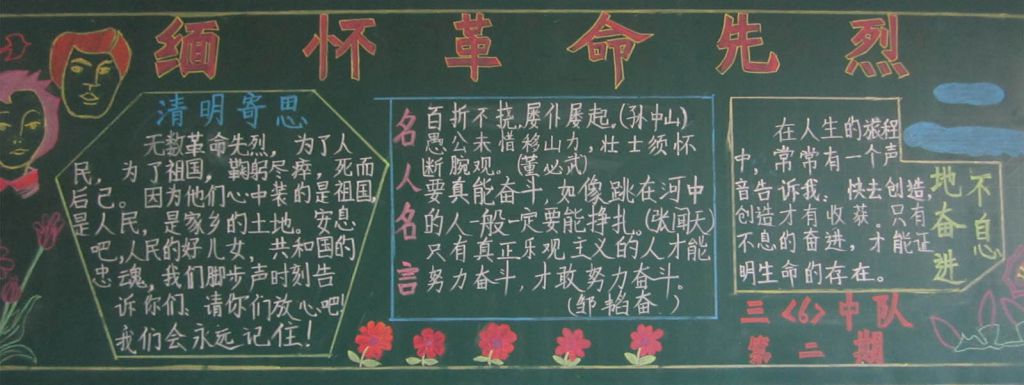 缅怀革命先烈
清明寄思
无数革命先烈，为了人
民，为了祖国，鞠躬尽瘁，死而
后己。因为他们心中装的是祖国，
是人民，是家乡的土地。安息
吧，人民的好儿女，共和国的
忠魂，我们脚步声时刻告
诉你们：请你们放心吧！
我们会永远记住！
名人名言
百折不挠，屡仆屡起。(孙中山)
愚公未惜移山力，壮士须怀
断腕观。(董必武)
要真能奋斗，如像跳在河中
的人一般一定要能挣扎。(张闻天)
只有真正乐观主义的人才能
努力奋斗，才敢努力奋斗。
(邹韬奋)
在人生的旅程
中，常常有一个声
音告诉我：快去创造，
创造才有收获。只有
不息的奋进，才能证
明生命的存在。
不息
地奋进
三〈6〉中队
第二期